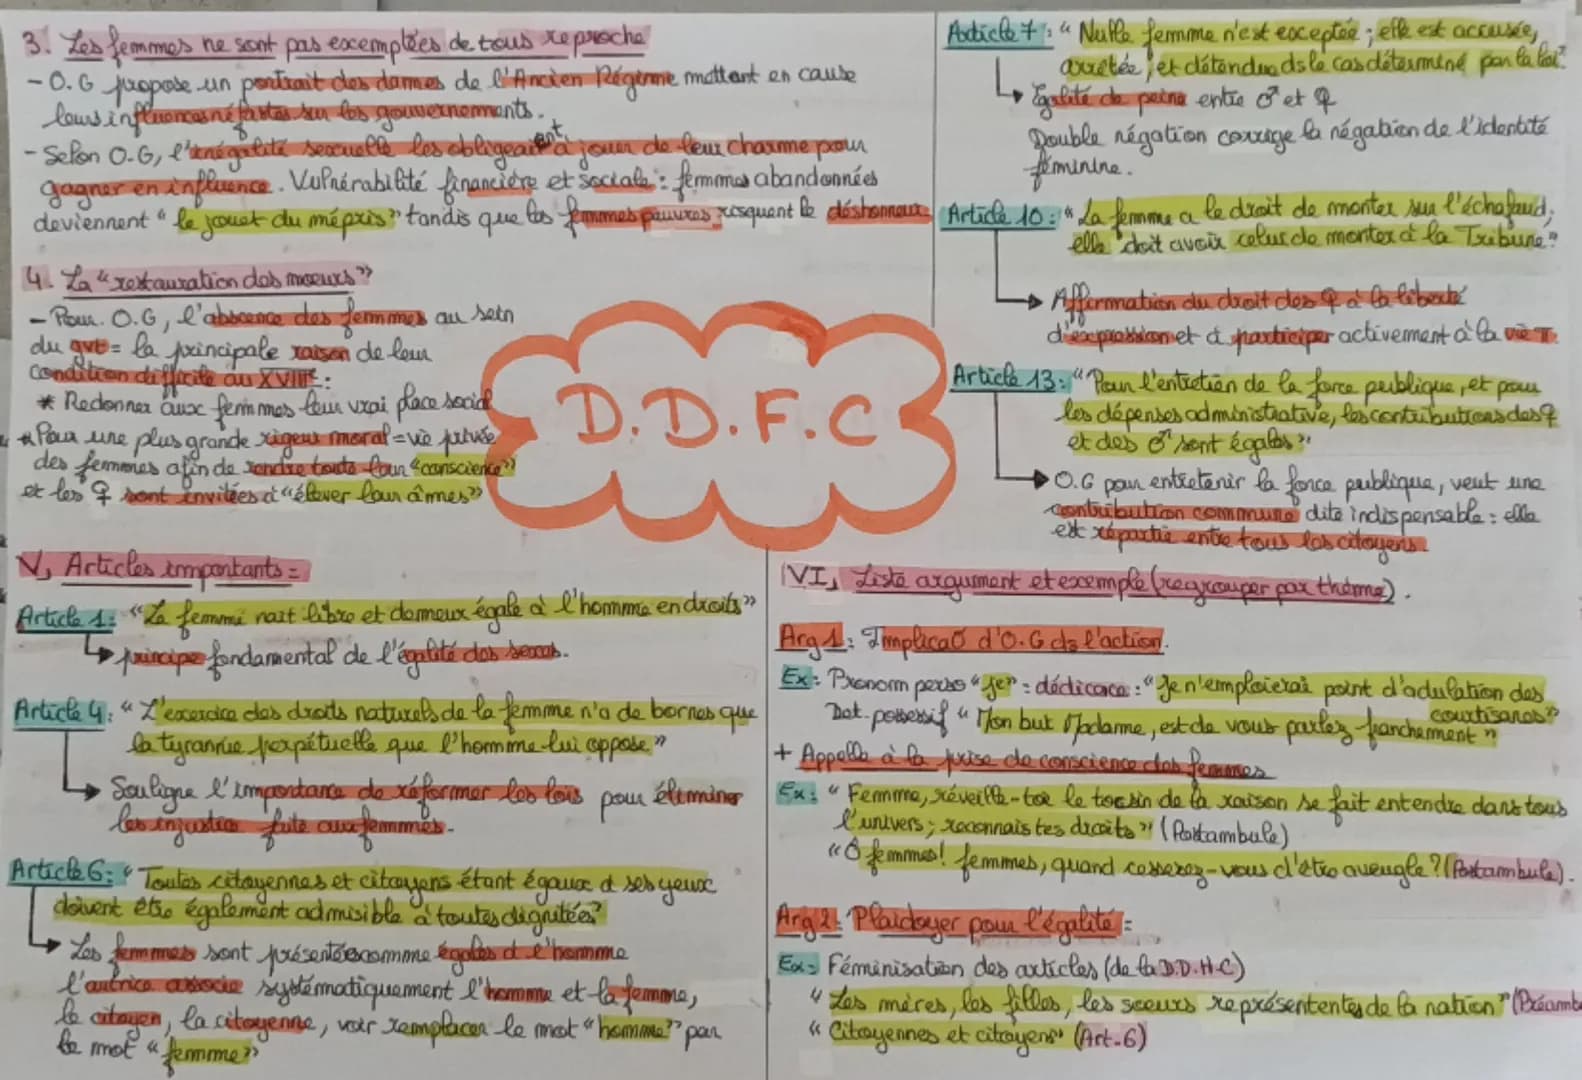 3. Les femmes ne sont pas excemptées de tous reproche
- O.G propose un portrait des dames de l'Ancien Régime mettant en cause
leurs influences néfastes sur les gouvernements.
- Selon O.G, l'inégalité sexuelle les obligeaient à jouer de leur charme pour
gagner en influence. Vulnérabilité financière et sociale : femmes abandonnées
deviennent "le jouet du mépris" tandis que les femmes pauvres risquent le déshonneur
4. La "restauration des moeurs"
- Pour O.G, l'abscence des femmes au sein
du gvt = la principale raison de leur
condition difficile au XVIIIe :
* Redonner aux femmes leur vrai place social
* Pour une plus grande rigeur moral = vie privée
des femmes afin de rendre toute leur "conscience"
et les ♀ sont invitées à "élever leur âmes"
V, Articles importants =
Article 1 : "La femme nait libre et demeure égale à l'homme en droits"
↳ principe fondamental de l'égalité des sexes.
Article 4 : "L'exercice des droits naturels de la femme n'a de bornes que
la tyrannie perpétuelle que l'homme lui oppose"
→ Souligne l'importance de réformer les lois pour éliminer
les injustice faite aux femmes.
Article 6 : "Toutes citoyennes et citoyens étant égaux à ses yeux
doivent être également admisible à toutes dignitées"
→ Les femmes sont présentées comme égales à l'homme
l'autrice associe systématiquement l'homme et la femme,
le citoyen, la citoyenne, voir remplacer le mot "homme" par
le mot "femme"
D.D.F.C
Article 7 : "Nulle femme n'est exceptée ; elle est accusée,
arrêtée, et détendue ds le cas déterminé par la loi".
↳ Egalité de peine entre ♂ et ♀
Double négation corrige la négation de l'identité
féminine.
Article 10 : "La femme a le droit de monter sur l'échafaud,
elle doit avoir celui de monter à la Tribune"
→ Affirmation du droit des ♀ à la liberté
d'expression et à participer activement à la vie π.
Article 13 : "Pour l'entretien de la force publique, et pour
les dépenses administrative, les contributions des ♀
et des ♂ sont égales"
→ O.G pour entretenir la force publique, veut une
contribution commune dite indispensable : elle
est répartie entre tous les citoyens.
VI, Liste argument et exemple (regrouper par thème).
Arg 1 : Implicaº d'O.G ds l'action.
Ex : Pronom perso "je" = dédicace : "Je n'emploierai point d'adulation des
courtisanes"
Det. possessif "Mon but Madame, est de vous parlez franchement"
+ Appelle à la prise de conscience des femmes
Ex : "Femme, réveille-toi le tocsin de la raison se fait entendre dans tous
l'univers ; reconnais tes droits" (Postambule)
"Ô femmes! femmes, quand cesserez-vous d'être aveugle ? (Postambule).
Arg 2 : Plaidoyer pour l'égalité =
Ex = Féminisation des articles (de la D.D.H.C)
"Les mères, les filles, les soeurs représententes de la nation" (Préamb
"Citoyennes et citoyens" (Art.6)